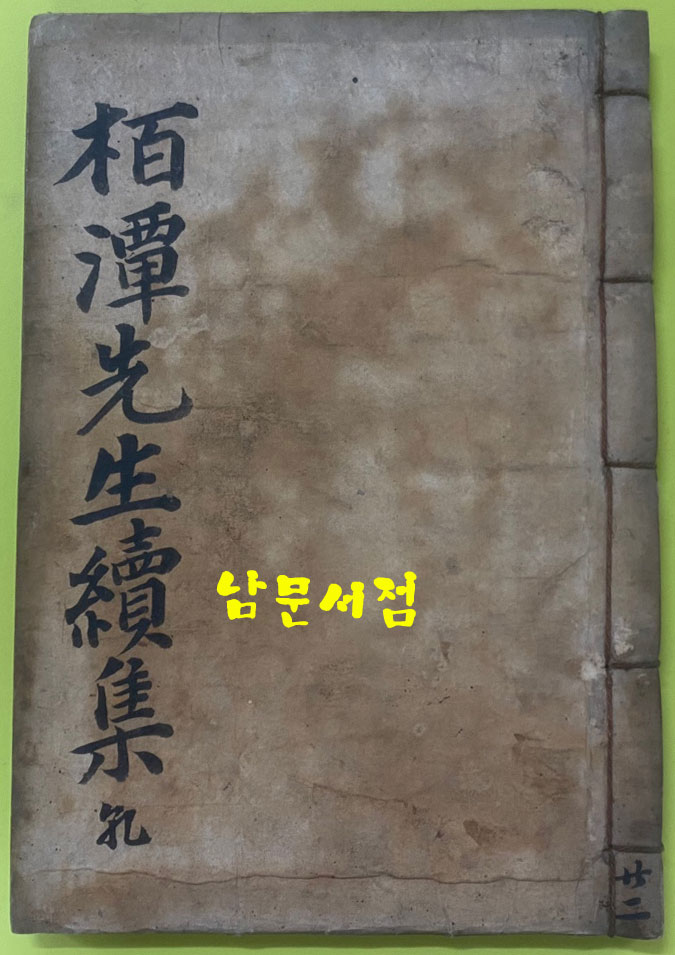 栢潭先生續集 乹
남문서점
共二